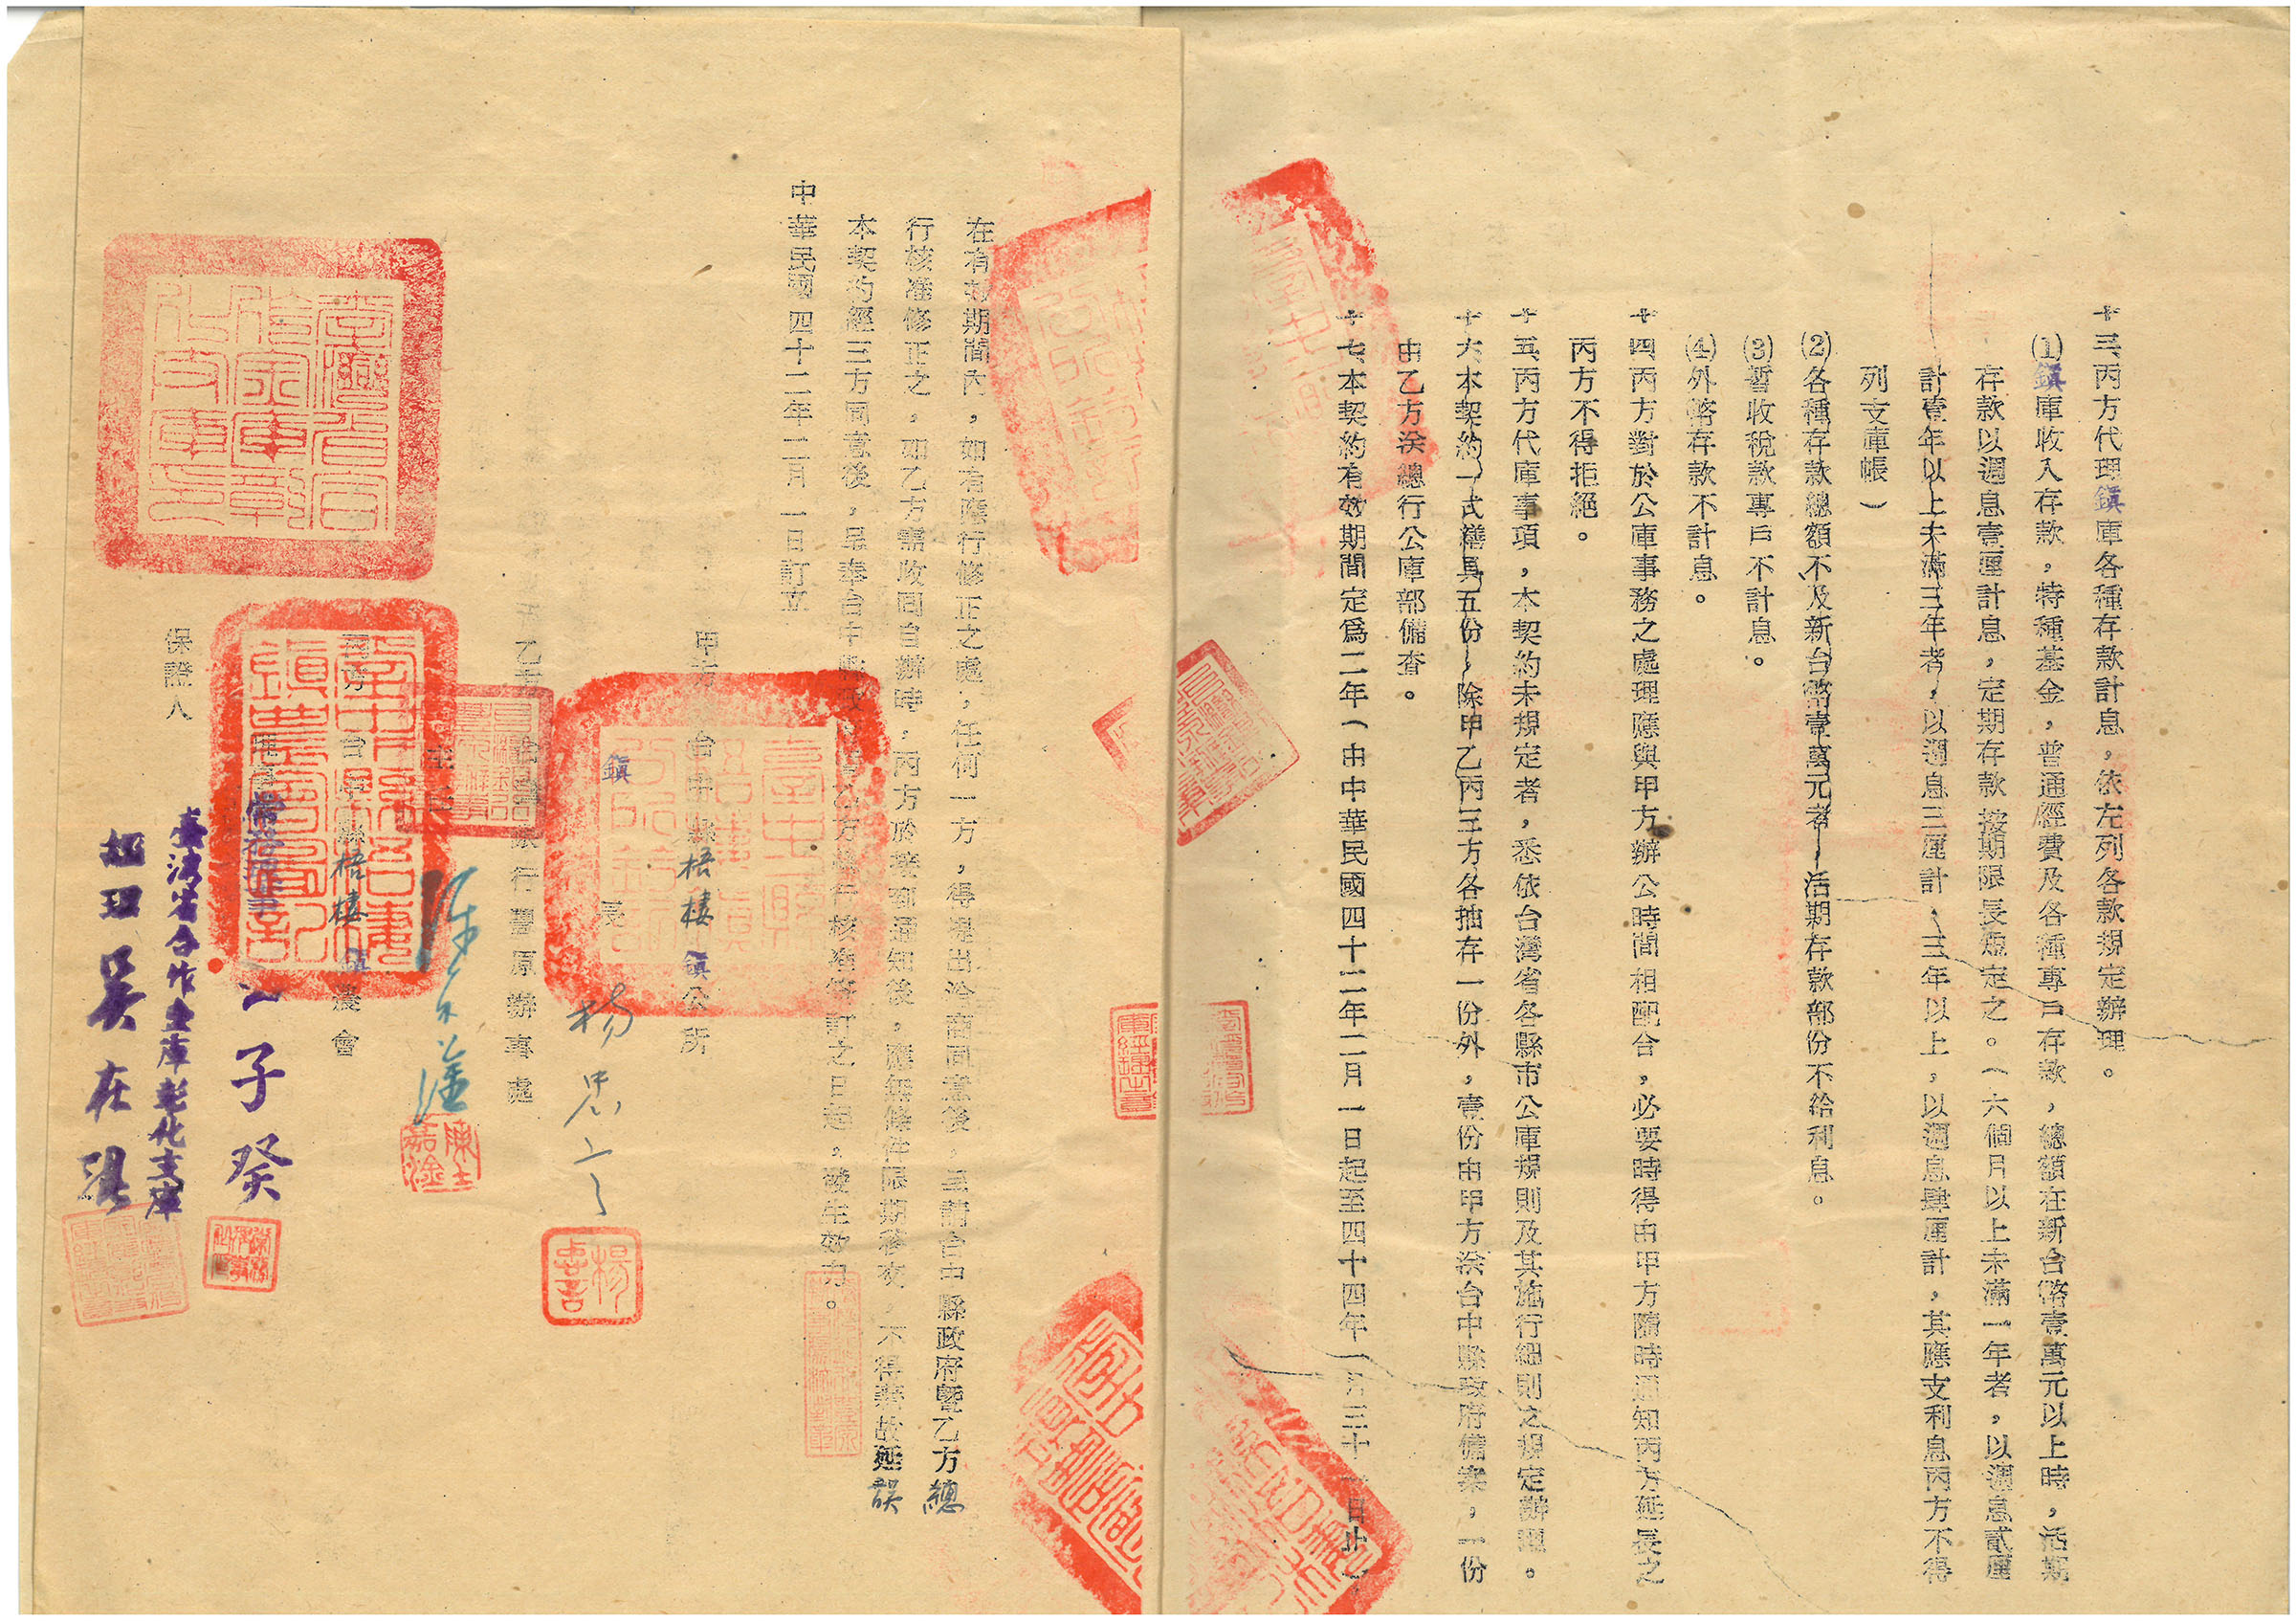 十三、丙方代理鎮庫各種存款計息，依左列各款規定辦理。
⑴鎮庫收入存款，特種基金，普通經費及各種專戶存款，總額在新台幣壹萬元以上時，活期
存款以週息壹厘計息，定期存款按期限長短定之。（六個月以上未滿一年者，以週息貳厘
計壹年以上未滿三年者，以週息三厘計、三年以上，以週息肆厘計，其應支利息丙方不得
列支庫帳）
⑵各種存款總額不及新台幣壹萬元者——活期存款部份不給利息。
⑶暫收稅款專戶不計息。
⑷外幣存款不計息。
十四、丙方對於公庫事務之處理應與甲方辦公時間相配合，必要時得由甲方隨時通知丙方延長之
丙方不得拒絕。
十五、丙方代庫事項，本契約未規定者，悉依台灣省各縣市公庫規則及其施行細則之規定辦理。
十六、本契約一式繕具五份，除甲乙丙三方各抽存一份外，壹份由甲方送台中縣政府備案，一份
由乙方送總行公庫部備查。
十七、本契約有效期間定為二年（由中華民國四十二年二月一日起至四十四年一月三十一日止），
在有效期間內，如有應行修正之處，任何一方，得提出洽商同意後，呈請台中縣政府暨乙方總
行核准修正之，如乙方需收回自辦時，丙方於接到通知後，應無條件限期移交，不得藉故延誤
本契約經三方同意後，呈奉台中縣政府暨乙方總行核准簽訂之日起，發生效力。
中華民國四十二年二月一日訂立
甲方 台中縣梧棲鎮公所
鎮長 楊忠言
乙方 台灣銀行豐原辦事處
主任 陳嘉淦
丙方 台中縣梧棲鎮農會
常務理事 子癸
保證人 臺灣省合作金庫彰化支庫
經理 吳在